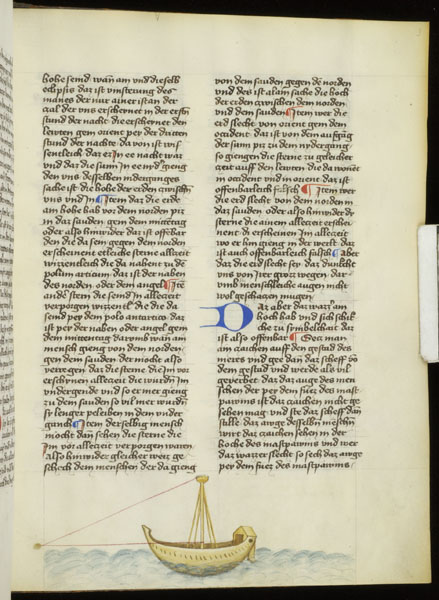 hohe send wan am und die selb
eclipsis dar ist vinsterung des
manes der nur ainer ist an der
zal der uns erscheinet in der ersten
stund der nacht die erscheinet den
lewten gem orient per der dritten
stund der nacht da von ist wis
sentleich daz ee in ee nacht waz
und daz die sunn in ee nid gieng
den uns desselben nidergangs
sache ist die hohe der erden zwischen
uns und in Item daz die erde
am hohe hab vor dem norden piz
in daz sunden gem dem mittentag
oder also hinwider daz ist offenbar
den die da sein gegen dem norden
erscheinent etleiche sterne allzeit
wizzenleich die da nahent zu de
polum articum daz ist der naben
des norden oder dem angel Ite
ander stern die send in allezeit
verporgen wizzenleich die die da
send per dem polo antartico daz
ist per der naben oder angel gem
dem mittentag darumb wan am
mensch gieng von dem norden
gen dem sunden der mocht also
verre gen daz die sterne die im vor
erschinen allezeit die wurden im
undergende und so er mer gieng
zu dem sunden so vil mer wurden
sy lenger peleiben in dem under
ganck Item der selbig mensch
mocht dan sehen die sterne die
im vor allezeit verporgen waren
also hinwider gleicher weiz ge
schech dem menschen der da gieng
von dem sunden gegen dem norden
und des ist alain sache die hoch
der erden zwischen dem norden
und dem sunden Item wer die
erd slecht von orient gem dem
occident daz ist von dem aufgang
der sunn piz zu dem nydergang
so giengen die sterne zu geleicher
zeit auff den lewten die da wonent
in occident und in orient daz ist
offenbarleich falsch Item wer
die erd slecht von dem norden in
daz sunden oder also hinwider die
sterne die ainem allezeit erschi
nent die erschinen im allezeit
wo er hin gieng in der werlt daz
ist auch offenbarleich falsch Aber
daz die erd slecht sey daz dunckt
uns von irer grozz wegen dar
umb menschleiche augen nicht
wol geschawen mugen
Daz aber daz wazzer am
hoch hab und sich schik
che zu symbelhait daz
ist also offenbar Secz man
am zaichen auff den gestad des
meres und gee dan daz scheff von
dem gestad und werde als vil
geverbet daz daz auge des men
schen der per dem fuez des mast
pawms ist daz zaichen nicht ge
sehen mag und ste daz scheff dan
stille daz awge desselben menschen
wirt daz zaichen sehen in der
hoche des mastpawms und wer
daz wazzer slecht so sech daz awge
per dem fuez des mastpawms